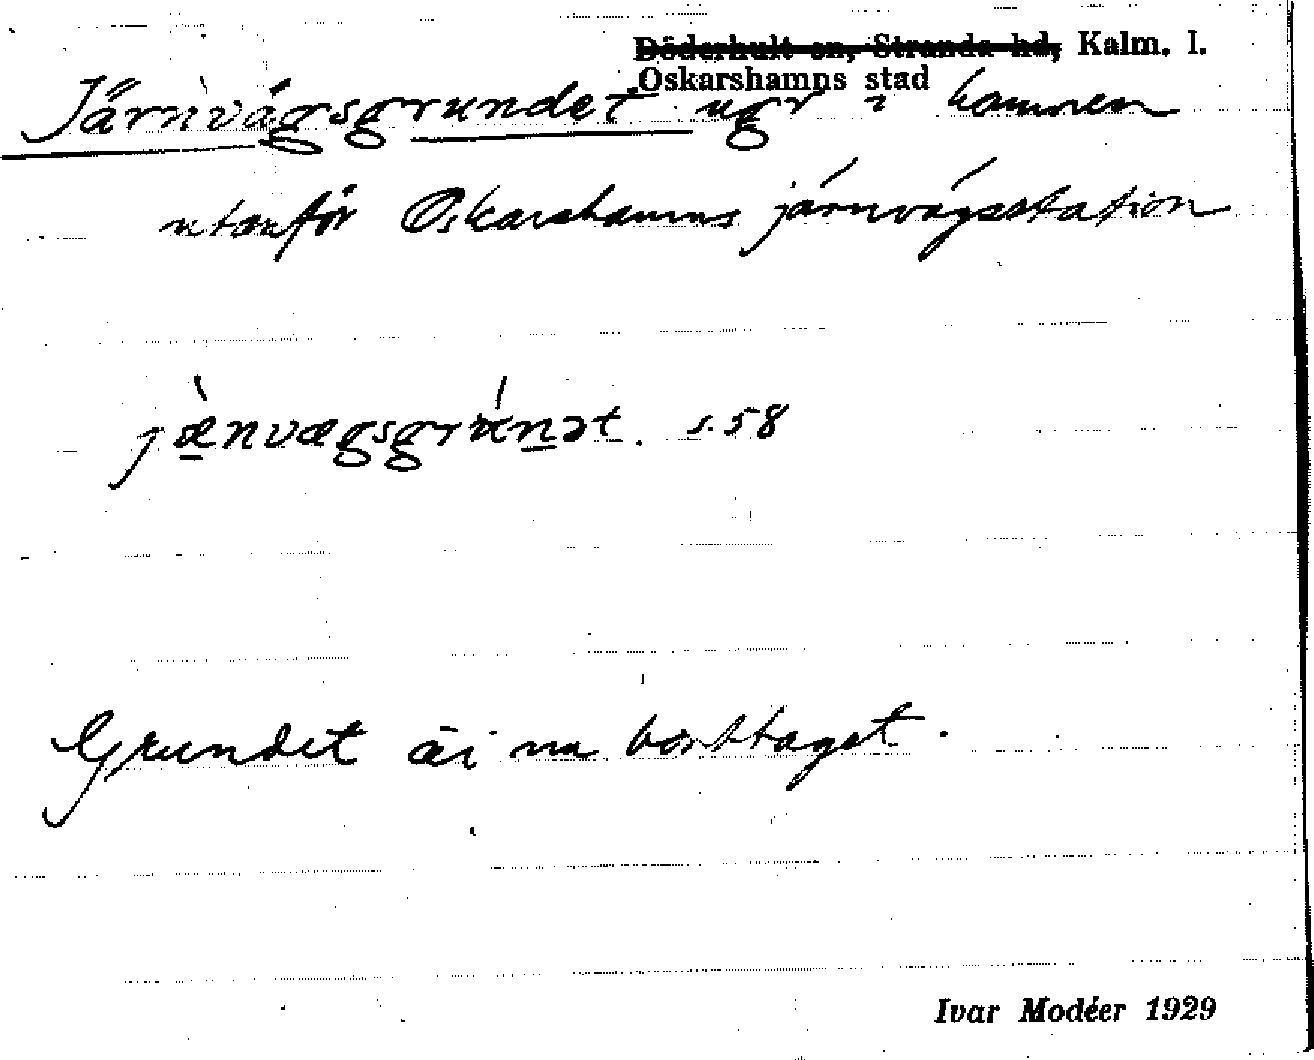 Döderhult sn, Stranda hd, Kalm. l.
Oskarshamns stad
Järnvägsgrundet ugr i hamnen
utanför Oskarshamns järnvägsstation
jæ̀nvægsgrúnət. s. 58
Grundet är nu borttaget.
Ivar Modéer 1929